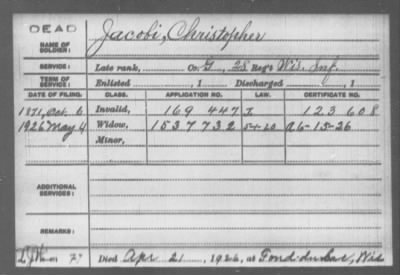 DEAD
NAME OF SOLDIER: Jacobi, Christopher
SERVICE: Late rank, Co. G, 28 Reg't Wis. Inf.
TERM OF SERVICE: Enlisted , 1 Discharged , 1
DATE OF FILING. CLASS. APPLICATION NO. LAW. CERTIFICATE NO.
1871, Oct. 6 Invalid, 169 447 I. 123 608
1926 May 4 Widow, 1537732 5-1-20 A6-15-26
Minor,
ADDITIONAL SERVICES:
REMARKS:
Died Apr 21, 1926, at Fond du Lac, Wis